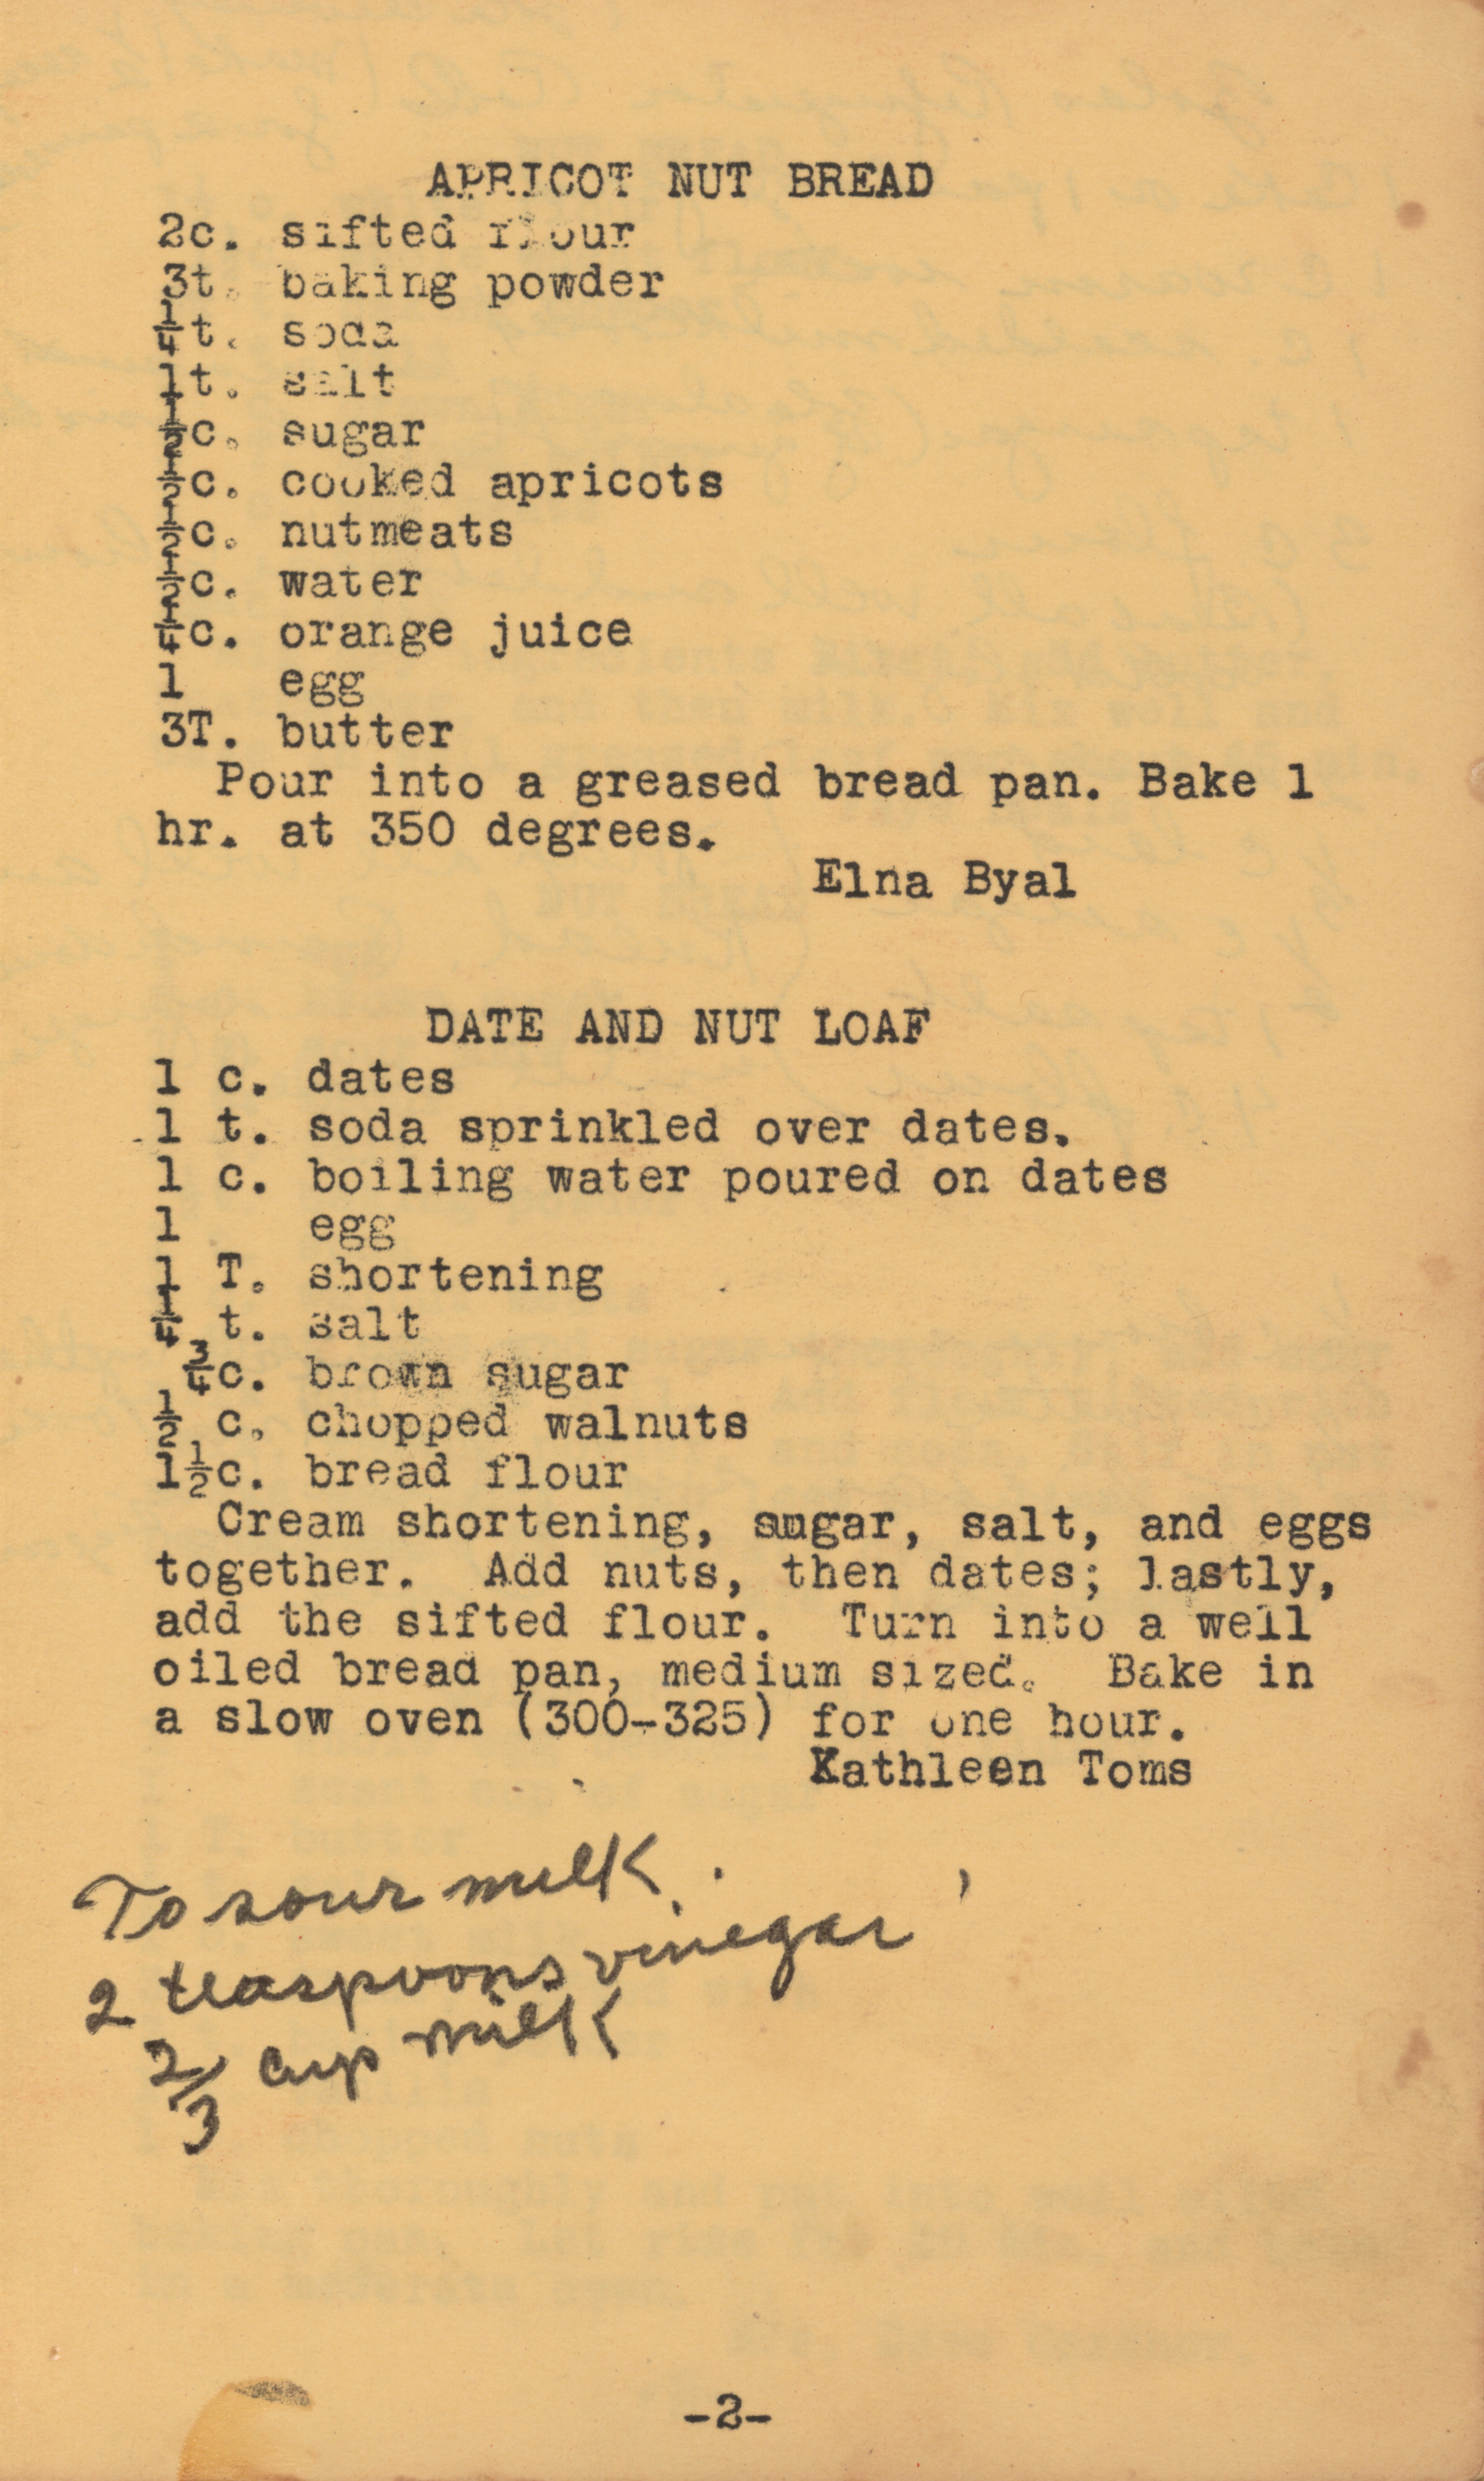 APRICOT NUT BREAD
2c. sifted flour
3t. baking powder
1/4t. soda
1t. salt
1/2c. sugar
1/2c. cooked apricots
1/2c. nutmeats
1/2c. water
1/4c. orange juice
1 egg
3T. butter
Pour into a greased bread pan. Bake 1
hr. at 350 degrees.
Elna Byal
DATE AND NUT LOAF
1 c. dates
1 t. soda sprinkled over dates.
1 c. boiling water poured on dates
1 egg
1 T. shortening
1/4 t. salt
3/4c. brown sugar
1/2 c. chopped walnuts
1 1/2c. bread flour
Cream shortening, sugar, salt, and eggs
together. Add nuts, then dates; lastly,
add the sifted flour. Turn into a well
oiled bread pan, medium sized. Bake in
a slow oven (300-325) for one hour.
Kathleen Toms
To sour milk
2 teaspoons vinegar
2/3 cup milk
-2-